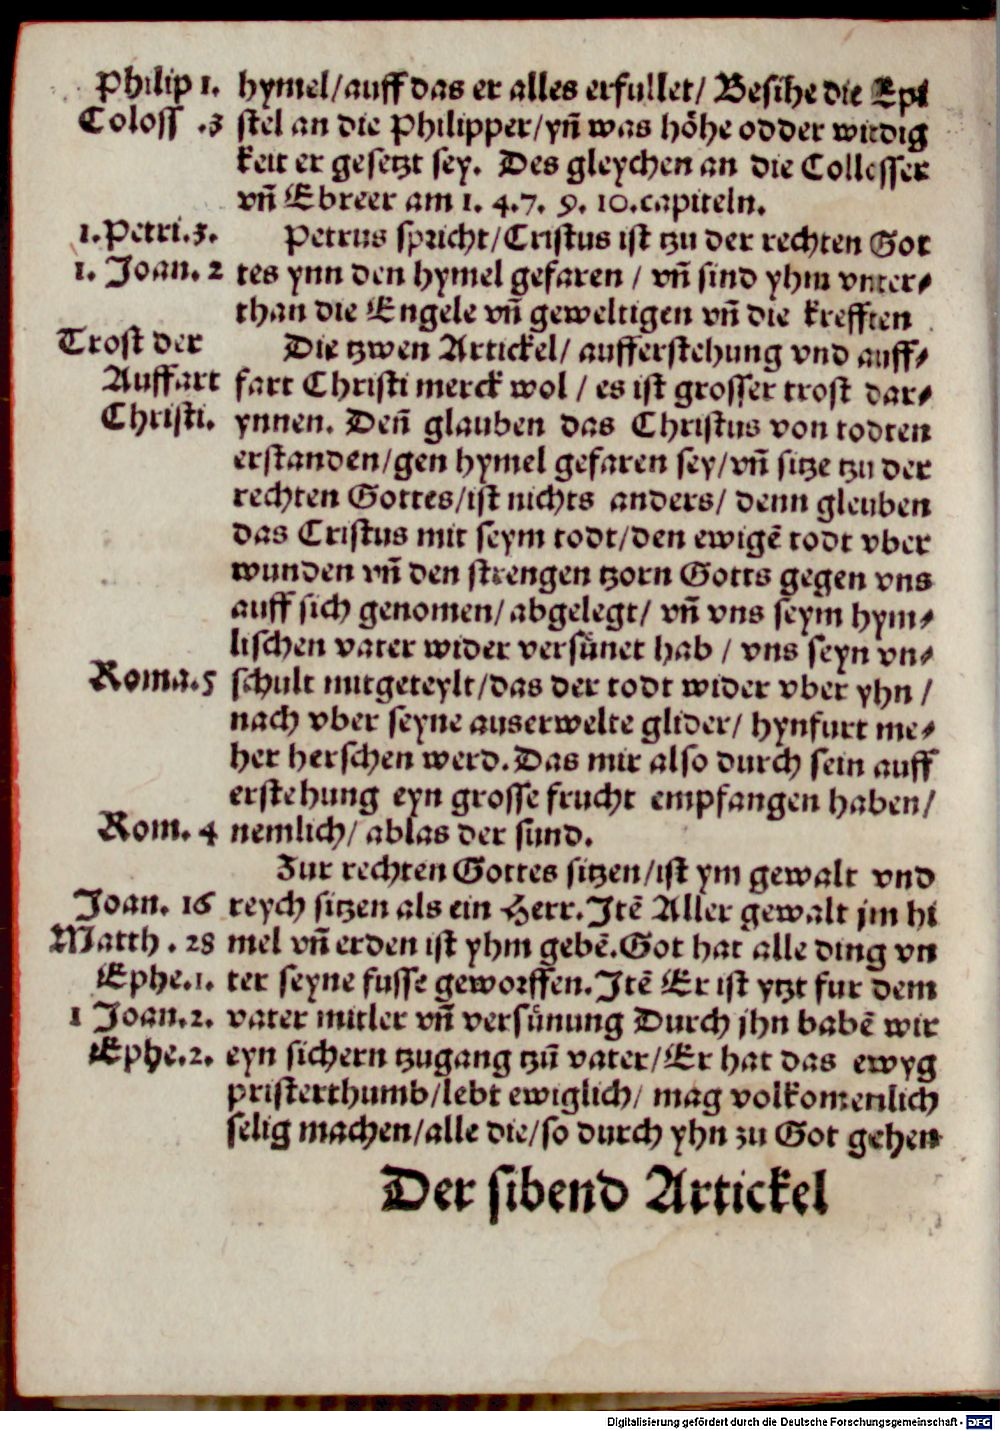 Philip 1. hymel/auff das er alles erfullet/ Besihe die Epi
Coloss .3 stel an die Philipper/yn̄ was höhe odder wirdig
keit er gesetzt sey. Des gleychen an die Collosser
vn̄ Ebreer am 1. 4.7. 9. 10.capiteln.
1.Petri.3. Petrus spricht/Cristus ist tzu der rechten Got
1. Joan. 2 tes ynn den hymel gefaren / vn̄ sind yhm vnter⸗
than die Engele vn̄ geweltigen vn̄ die krefften
Trost der Die tzwen Artickel/ aufferstehung vnd auff⸗
Auffart fart Christi merck wol / es ist grosser trost dar⸗
Christi. ynnen. Den̄ glauben das Christus von todten
erstanden/gen hymel gefaren sey/vn̄ sitze tzu der
rechten Gottes/ist nichts anders/ denn gleuben
das Cristus mit seym todt/den ewigē todt vber
wunden vn̄ den strengen tzorn Gotts gegen vns
auff sich genomen/abgelegt/ vn̄ vns seym hym⸗
lischen vater wider versünet hab / vns seyn vn⸗
Roma.5 schult mitgeteylt/das der todt wider vber yhn /
nach vber seyne auserwelte glider/ hynfurt me⸗
her herschen werd.Das mir also durch sein auff
erstehung eyn grosse frucht empfangen haben/
Rom. 4 nemlich/ ablas der sund.
Zur rechten Gottes sitzen/ist ym gewalt vnd
Joan. 16 reych sitzen als ein Herr.Jtē Aller gewalt jm hi
Matth . 28 mel vn̄ erden ist yhm gebē.Got hat alle ding vn
Ephe.1. ter seyne fusse geworffen.Jtē Er ist ytzt fur dem
1 Joan.2. vater mitler vn̄ versünung Durch jhn habē wir
Ephe.2. eyn sichern tzugang tzū vater/Er hat das ewyg
pristerthumb/lebt ewiglich/ mag volkomenlich
selig machen/alle die/so durch yhn zu Got gehen
Der sibend Artickel
Digitalisierung gefördert durch die Deutsche Forschungsgemeinschaft - DFG